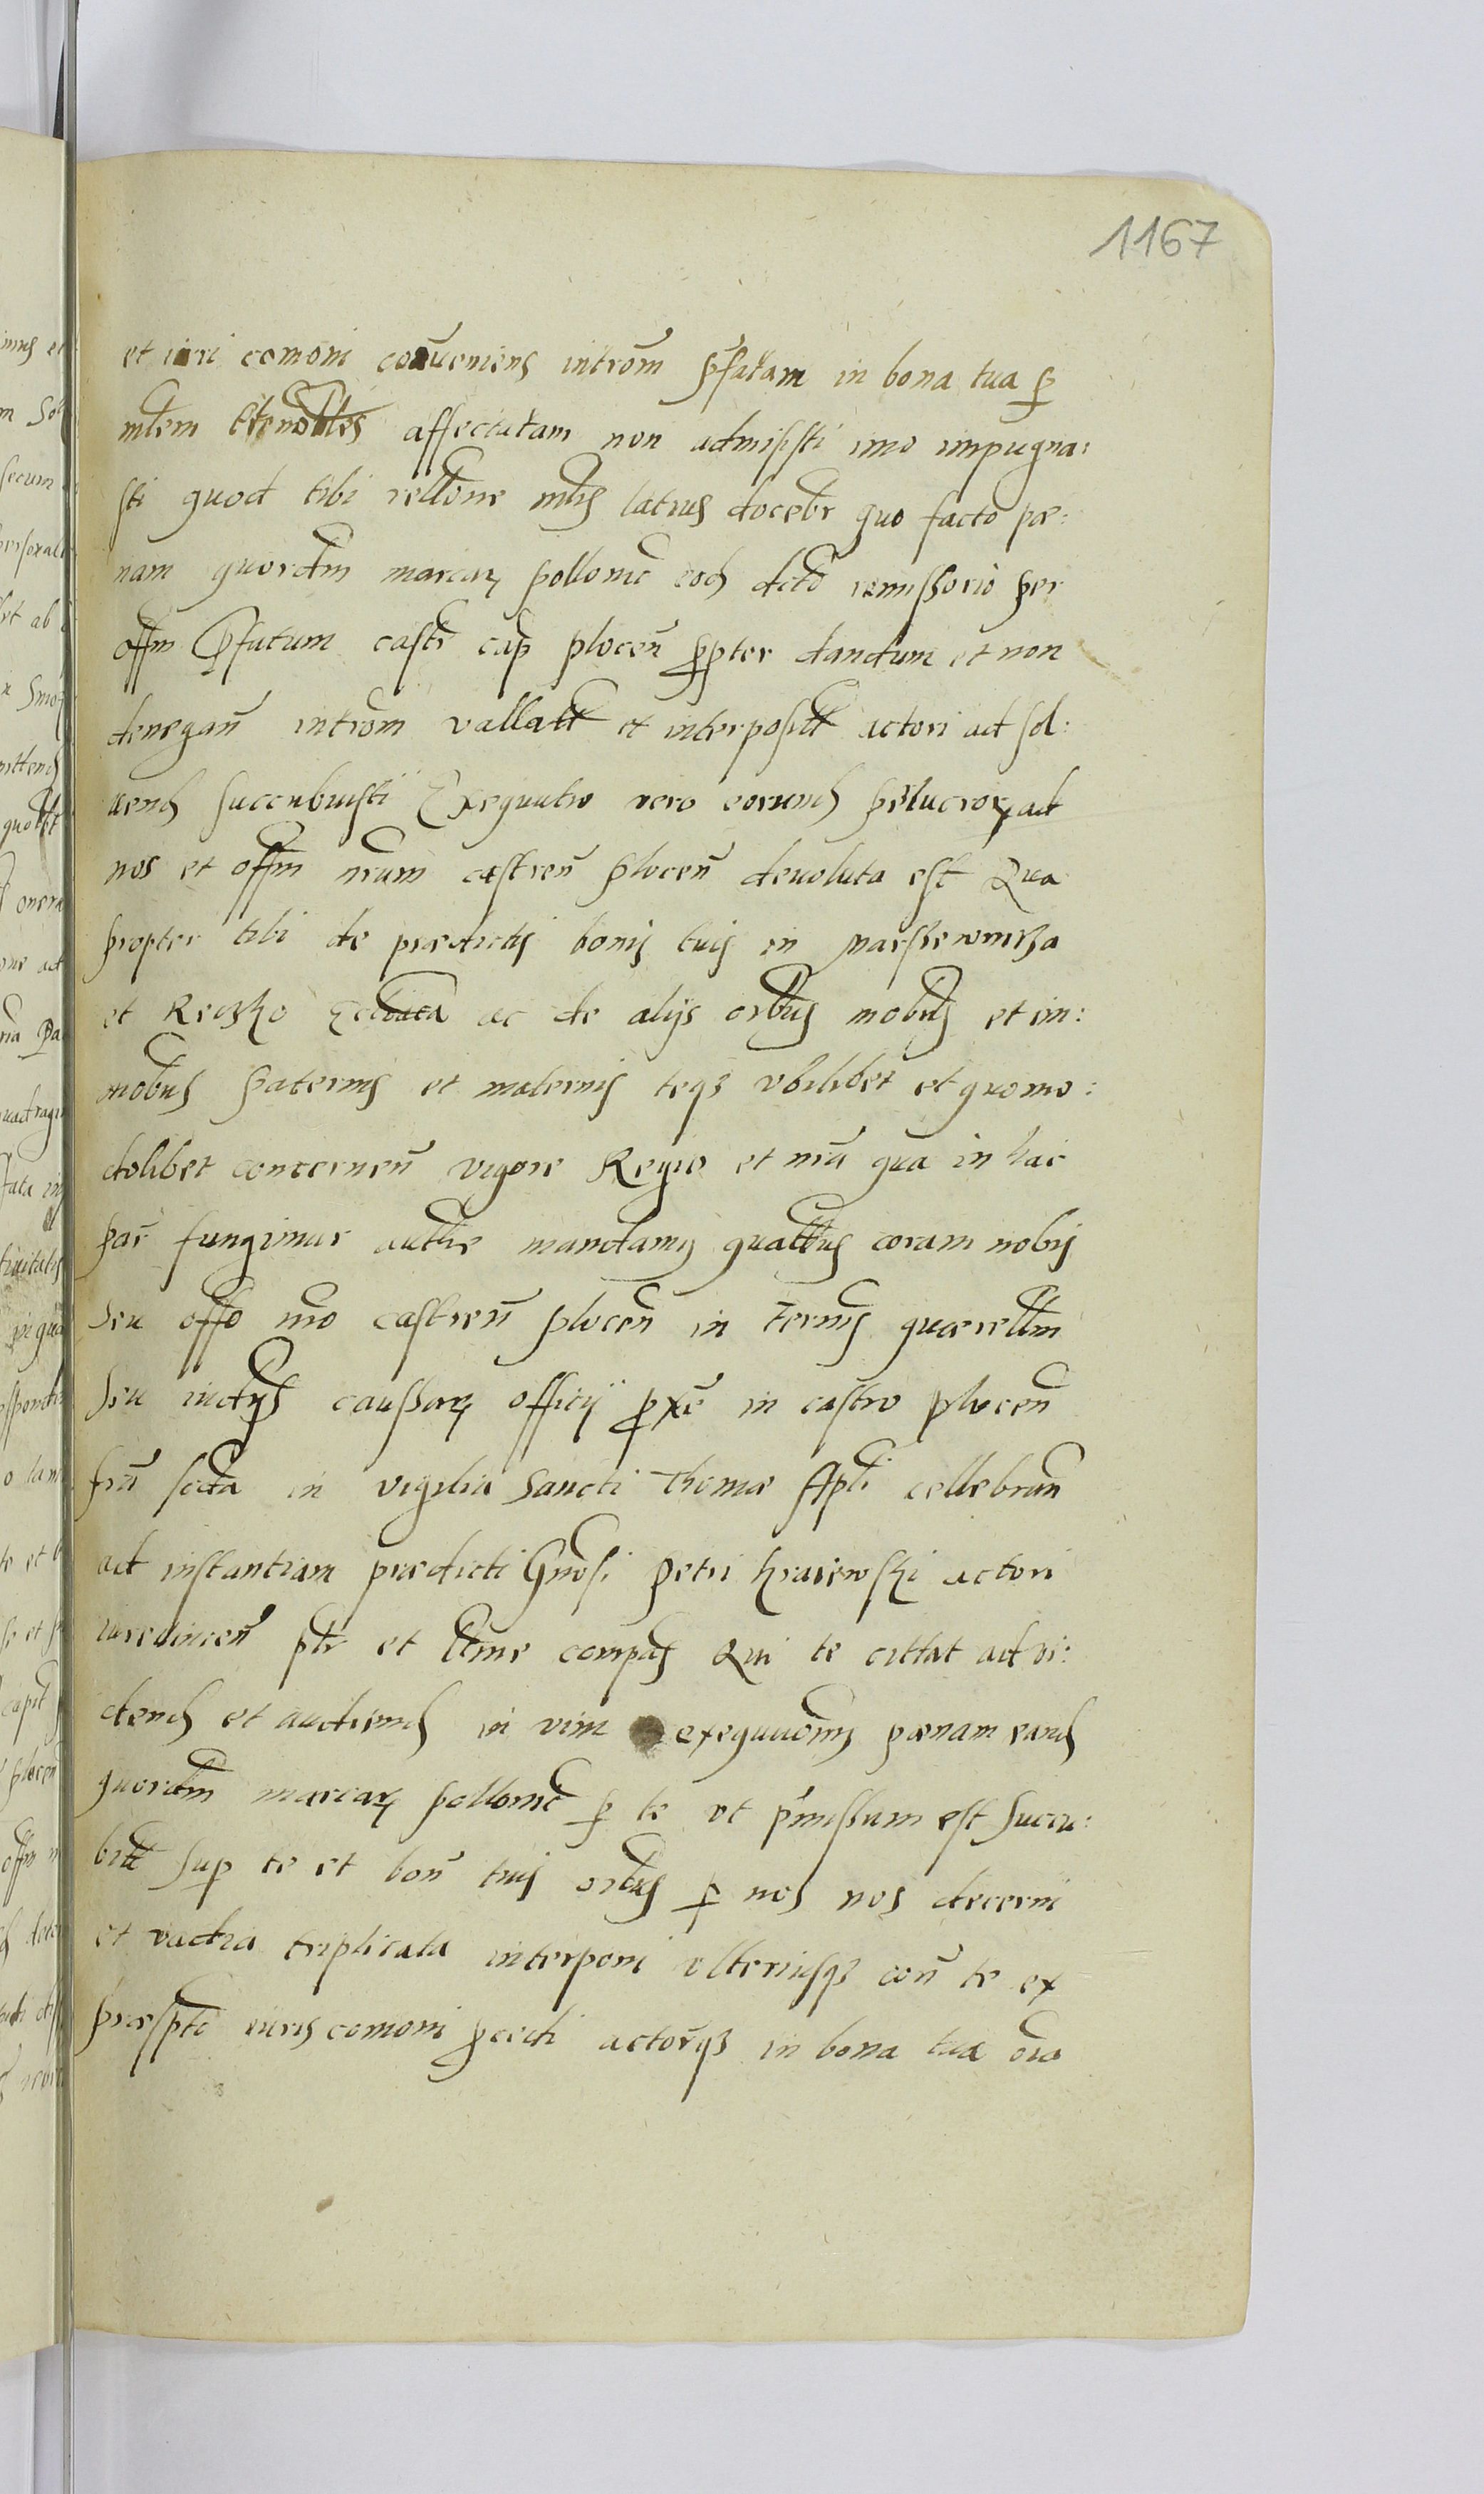 1167
et iuri comoni conueniens introm pfatam in bona tua p
mlem et nobles affectatam non admisisti imo impugna:
sti quod tibi rellone mlis latius docebr quo facto pœ:
nam quordm marcar pollonic eod dcto remissorio per
offm pfatum castr cap plocen ppter dandum et non
denegan introm vallatt et interposit actori ad sol:
uend succubuisti Exequutio vero eorund plucror ad
nos et offm nrum castren plocen deuoluta est Qua
propter tibi de prædictis bonis tuis in
et ac de alijs oibus mobus et im:
mobus paternis et maternis teqз vbilibet et quomo:
dolibet concernen vigore Regia et nra qua in hac
par fungimur authe mandamus quattus coram nobis
seu offo nro castren plocen in termis quærellm
seu iudicys caussar officij pxe in castro plocen
fria secda in vigilia Sancti Thomæ Apli cellebran
ad instantiam prædicti Gnosi Petri Kraiewski actori
iuredincen ptr et ltme compas Qui te cittat ad vi:
dend et audiend in vim exequuonis pœnam eand
quordm marcar pollonic p te vt pmissum est succu:
bitt sup te et bon tuis oibus p nos nos decerni
et vadia triplicata interponi vlteriusqз con te ex
præspto iuris comoni pcedi actorqз in bona tua oia